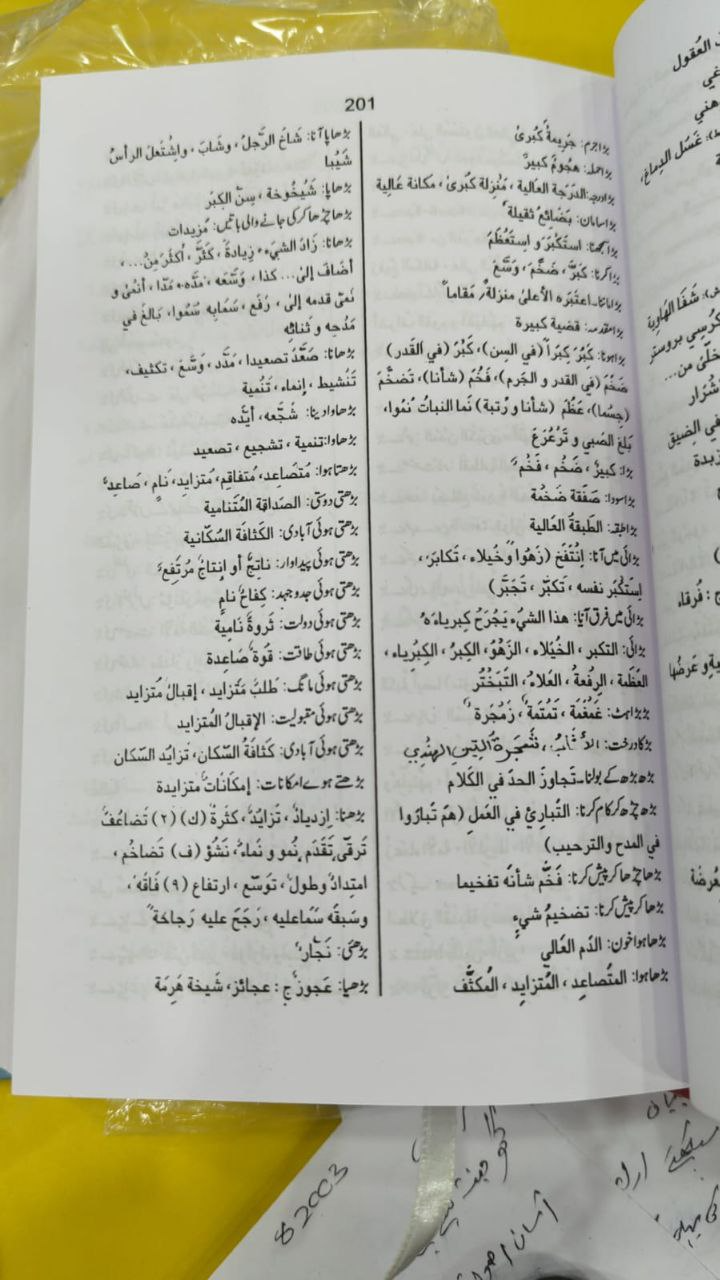 201
بڑا جرم: جَرِيمةٌ كُبرىٰ
بڑا حملہ: هجُومٌ كبيرٌ
بڑا درجہ: الدّرجة العالية، مَنزلة كُبرىٰ، مكانة عَالية
بڑا سامان: بَضائعُ ثقيلة
بڑا سمجھنا: استَكْبَرَ و استَعْظَمَ
بڑا کرنا: كبَّرَ، ضَخَّمَ، وَسَّعَ
بڑا ماننا: اعتبَره الأعلىٰ منزلةً، مَقاماً
بڑا مقدمہ: قضية كبيرة
بڑا ہونا: كَبُرَ كِبَراً (في السِن)، كَبُرَ (في القَدر)
ضَخُمَ (في القدر و الجَرم)، فَخُمَ (شأنا)، تَضخَّمَ
(جِسْما)، عَظُمَ (شأنا و رُتبة) نَما النباتُ نُموا،
بَلغَ الصَبي و تَرعْرَعَ
بڑا: كبيرٌ، ضَخُم، فَخُم
بڑا سودا: صَفقَة ضَخْمَة
بڑا طبقہ: الطَبقةُ العَالية
بڑائی میں آنا: اِنْتَفَخَ (زَهُوا وَخُيلاء، تَكابَر،
اِستَكْبَر نفسه، تَكبّر، تَجَبَّر)
بڑائی میں فرق آنا: هذا الشيء يَجْرَحُ كِبرياءَهُ
بڑائی: التكبر، الخُيَلاء، الزَهْوُ، الكِبرُ، الكِبْرِياء،
العَظَمة، الرِفْعةُ، العَلاءُ، التَبخْتُر
بڑبڑاہٹ: غَمْغَمَة، تَمْتَمَة، زَمْجَرة
بڑ کا درخت: الأثأبُ، شجرة التين الهندي
بڑھ بڑھ کے بولنا۔ تَجاوزَ الحدّ في الكَلَام
بڑھ چڑھ کر کام کرنا: التَبارِيْ في العَملِ (هَمْ تَبارُوا
في المدح والترحيب)
بڑھا چڑھا کر پیش کرنا: فَخَّم شَأنَه تفخيما
بڑھا کر پیش کرنا: تَضخيمُ شيءٍ
بڑھا ہوا خون: الدّم العَالي
بڑھا ہوا: المتَصاعِد، المُتزايِد، المُكثَّف
بڑھاپا آنا: شَاخَ الرَّجلُ، وشَابَ، واشْتعلَ الرأسُ
شَيْبا
بڑھاپا: شَيْخُوخة، سِنّ الكِبَر
بڑھا چڑھا کر کی جانے والی باتیں: مُزيدات
بڑھانا: زَادَ الشيءَ زِيادةً، كَثَّرَ، أكثَرَ مِنْ...،
أضَافَ إلى... كذا، وَسَّعَه، مَدَّه مَدّا، أنْمىٰ و
نَمىّ قدمه إلىٰ، رَفَع، سَمَابِه سُمُوا، بَالغَ في
مَدْحِه و ثَنائِه
بڑھانا: صَعَّدَ تصعيدا، مَدَّد، وَسَّعَ، تكثيف،
تَنْشيط، إنماء، تَنْمية
بڑھاوا دینا: شَجَّعه، أيَّده
بڑھاوا: تنمية، تشجيع، تصعيد
بڑھتا ہوا: مُتصَاعِد، مُتفاقِم، مُتزايد، نَامٍ، صَاعِد
بڑھتی دوستی: الصَداقة المُتَنامِية
بڑھتی ہوئی آبادی: الكَثافَة السُكانية
بڑھتی ہوئی پیداوار: ناتِجٌ أو إنتاجٌ مُرتفِعٌ
بڑھتی ہوئی جدوجہد: كِفاحٌ نامٍ
بڑھتی ہوئی دولت: ثَروةٌ نَامِيةٌ
بڑھتی ہوئی طاقت: قُوة صَاعِدة
بڑھتی ہوئی مانگ: طَلبٌ مُتَزايد، إقبالٌ مُتزايد
بڑھتی ہوئی مقبولیت: الإقبالُ المُتزايد
بڑھتی ہوئی آبادی: كَثافَةُ السُكّان، تَزايُد السَكان
بڑھتے ہوے امکانات: إمكَاناتٌ متزايدة
بڑھنا: اِزديادٌ، تَزايُدٌ، كَثرةٌ (ك) (٢) تَضاعُفٌ
تَرقّي تَقَدُّم نُمو و نَماءٌ، نَشُوٌ (ف) تَضاخُم،
امتِدادٌ وطولٌ، تَوسّع، ارتفاع (٩) فَاقَه،
وسَبقُه سَماعليه، رَجَحَ عليه رَجاحَة
بڑھئی: نَجّار
بڑھیا: عَجوز ج: عجائز، شَيخة هَرِمَة
82003